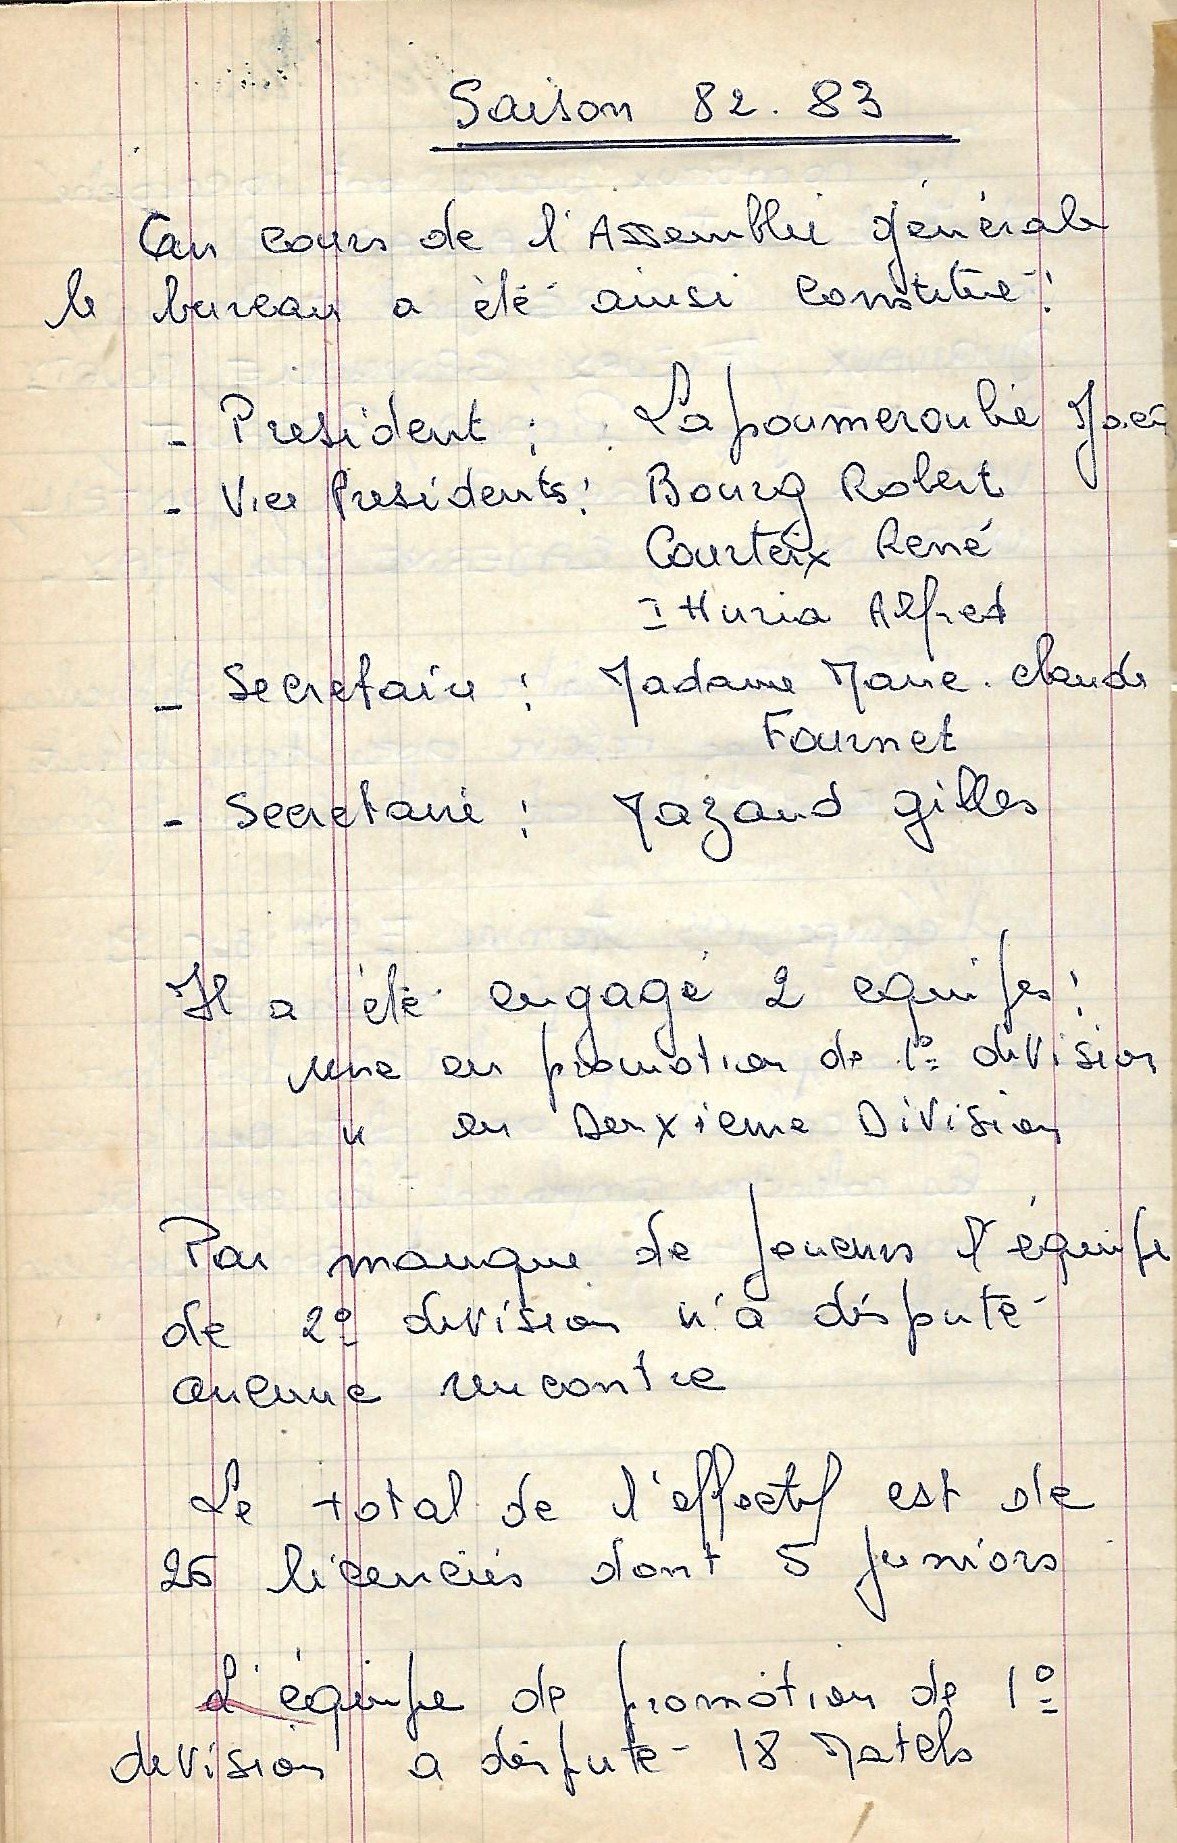 Saison 82.83
Au cours de l'Assemblée générale
le bureau a été ainsi constitué :
- President : Lapoumeroulie
- Vice Presidents : Bourg Robert
Courteix René
IHuria Alfred
- Secretaire : Madame Marie. Claude
Fournet
- Secretaire : Mazaud Gilles
Il a été engagé 2 equipes :
une en promotion de 1º division
" en Deuxieme Division
Par manque de joueurs l'équipe
de 2º division n'a disputé
aucune rencontre
Le total de l'effectif est de
26 licenciés dont 5 juniors
L'équipe de promotion de 1º
division a disputé 18 Matchs